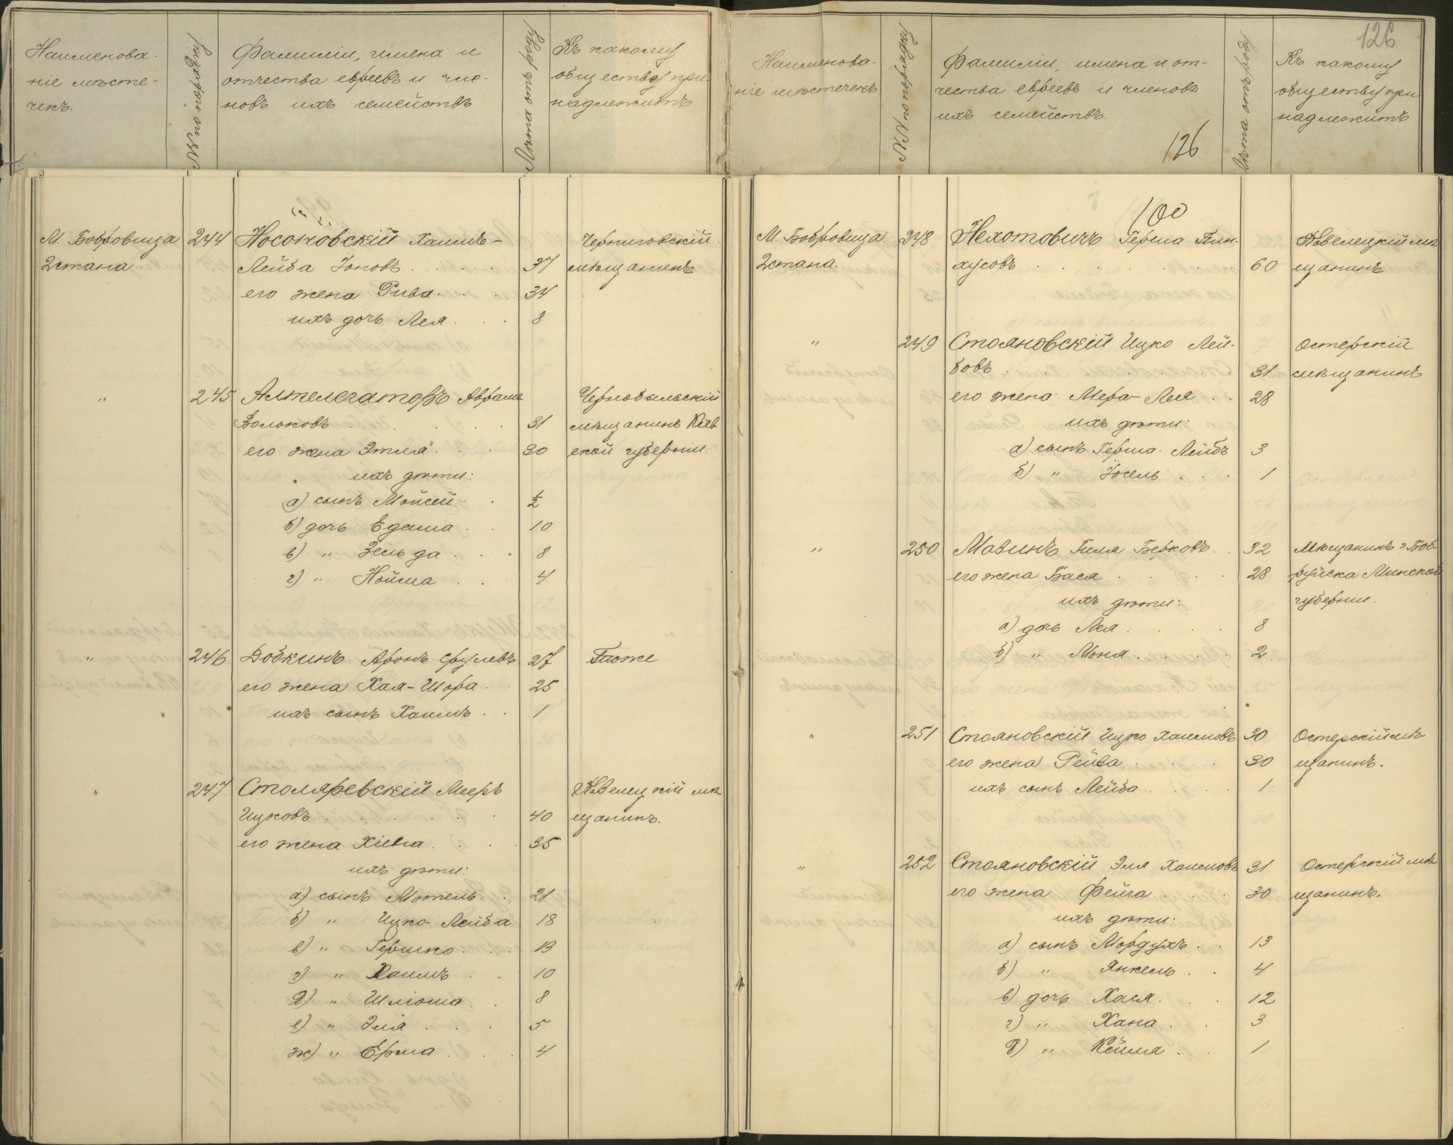 Наименова-
ніе мѣсте-
чекъ.
№№ по порядку
Фамиліи, имена и
отчества евреевъ и чле-
новъ ихъ семействъ
Лѣта отъ роду
Къ какому
обществу при-
надлежитъ
М. Бобровица
2 стана
244
Носоновскій Хаимъ-
Лейба Іоновъ
37
Черниговскій
мѣщанинъ
его жена Рива
34
ихъ дочь Лея
8
"
245
Алтелегаторъ Аврамъ
Вольковъ
31
Чернобыльскій
мѣщанинъ Кіев
ской губерніи
его жена Этля
30
ихъ дѣти:
а) сынъ Мойсей
½
б) дочь Едаша
10
в) " Зельда
8
г) " Нойма
4
"
246
Добкинъ Аронъ Срулевъ
27
Тоже
его жена Хая-Шора
25
ихъ сынъ Хаимъ
1
"
247
Столяревскій Мееръ
Ицковъ
40
Козелецкій мѣ
щанинъ.
его жена Хіевна
35
ихъ дѣти:
а) сынъ Мотель
21
б) " Ицко-Лейба
18
в) " Гершко
13
г) " Хаимъ
10
д) " Шліома
8
е) " Элія
5
ж) " Ерма
4
126
Наименова-
ніе мѣстечекъ
№№ по порядку
Фамиліи, имена и от-
чества евреевъ и членовъ
ихъ семействъ.
126
Лѣта отъ роду
Къ какому
обществу при
надлежитъ
100
М. Бобровица
2 стана.
248
Нехотовичъ Герша Пин-
хусовъ
60
Козелецкій мѣ
щанинъ
"
249
Стояновскій Ицко Лей-
бовъ
31
Остерскій
мѣщанинъ
его жена Мера-Лея
28
ихъ дѣти:
а) сынъ Герша-Лейбъ
3
б) " Іосель
1
"
250
Мазинъ Гиля Берковъ
32
Мѣщанинъ г. Боб-
руйска Минской
губерніи.
его жена Бася
28
ихъ дѣти:
а) дочь Лея
8
б) " Моня
2
"
251
Стояновскій Ицко Хаимовъ
30
Остерскій мѣ
щанинъ.
его жена Рейза
30
ихъ сынъ Лейба
1
"
252
Стояновскій Эля Хаимовъ
31
Остерскій мѣ
щанинъ.
его жена Фейга
30
ихъ дѣти:
а) сынъ Мордухъ
13
б) " Янкель
4
в) дочь Хася
12
г) " Хана
3
д) " Кейля
1